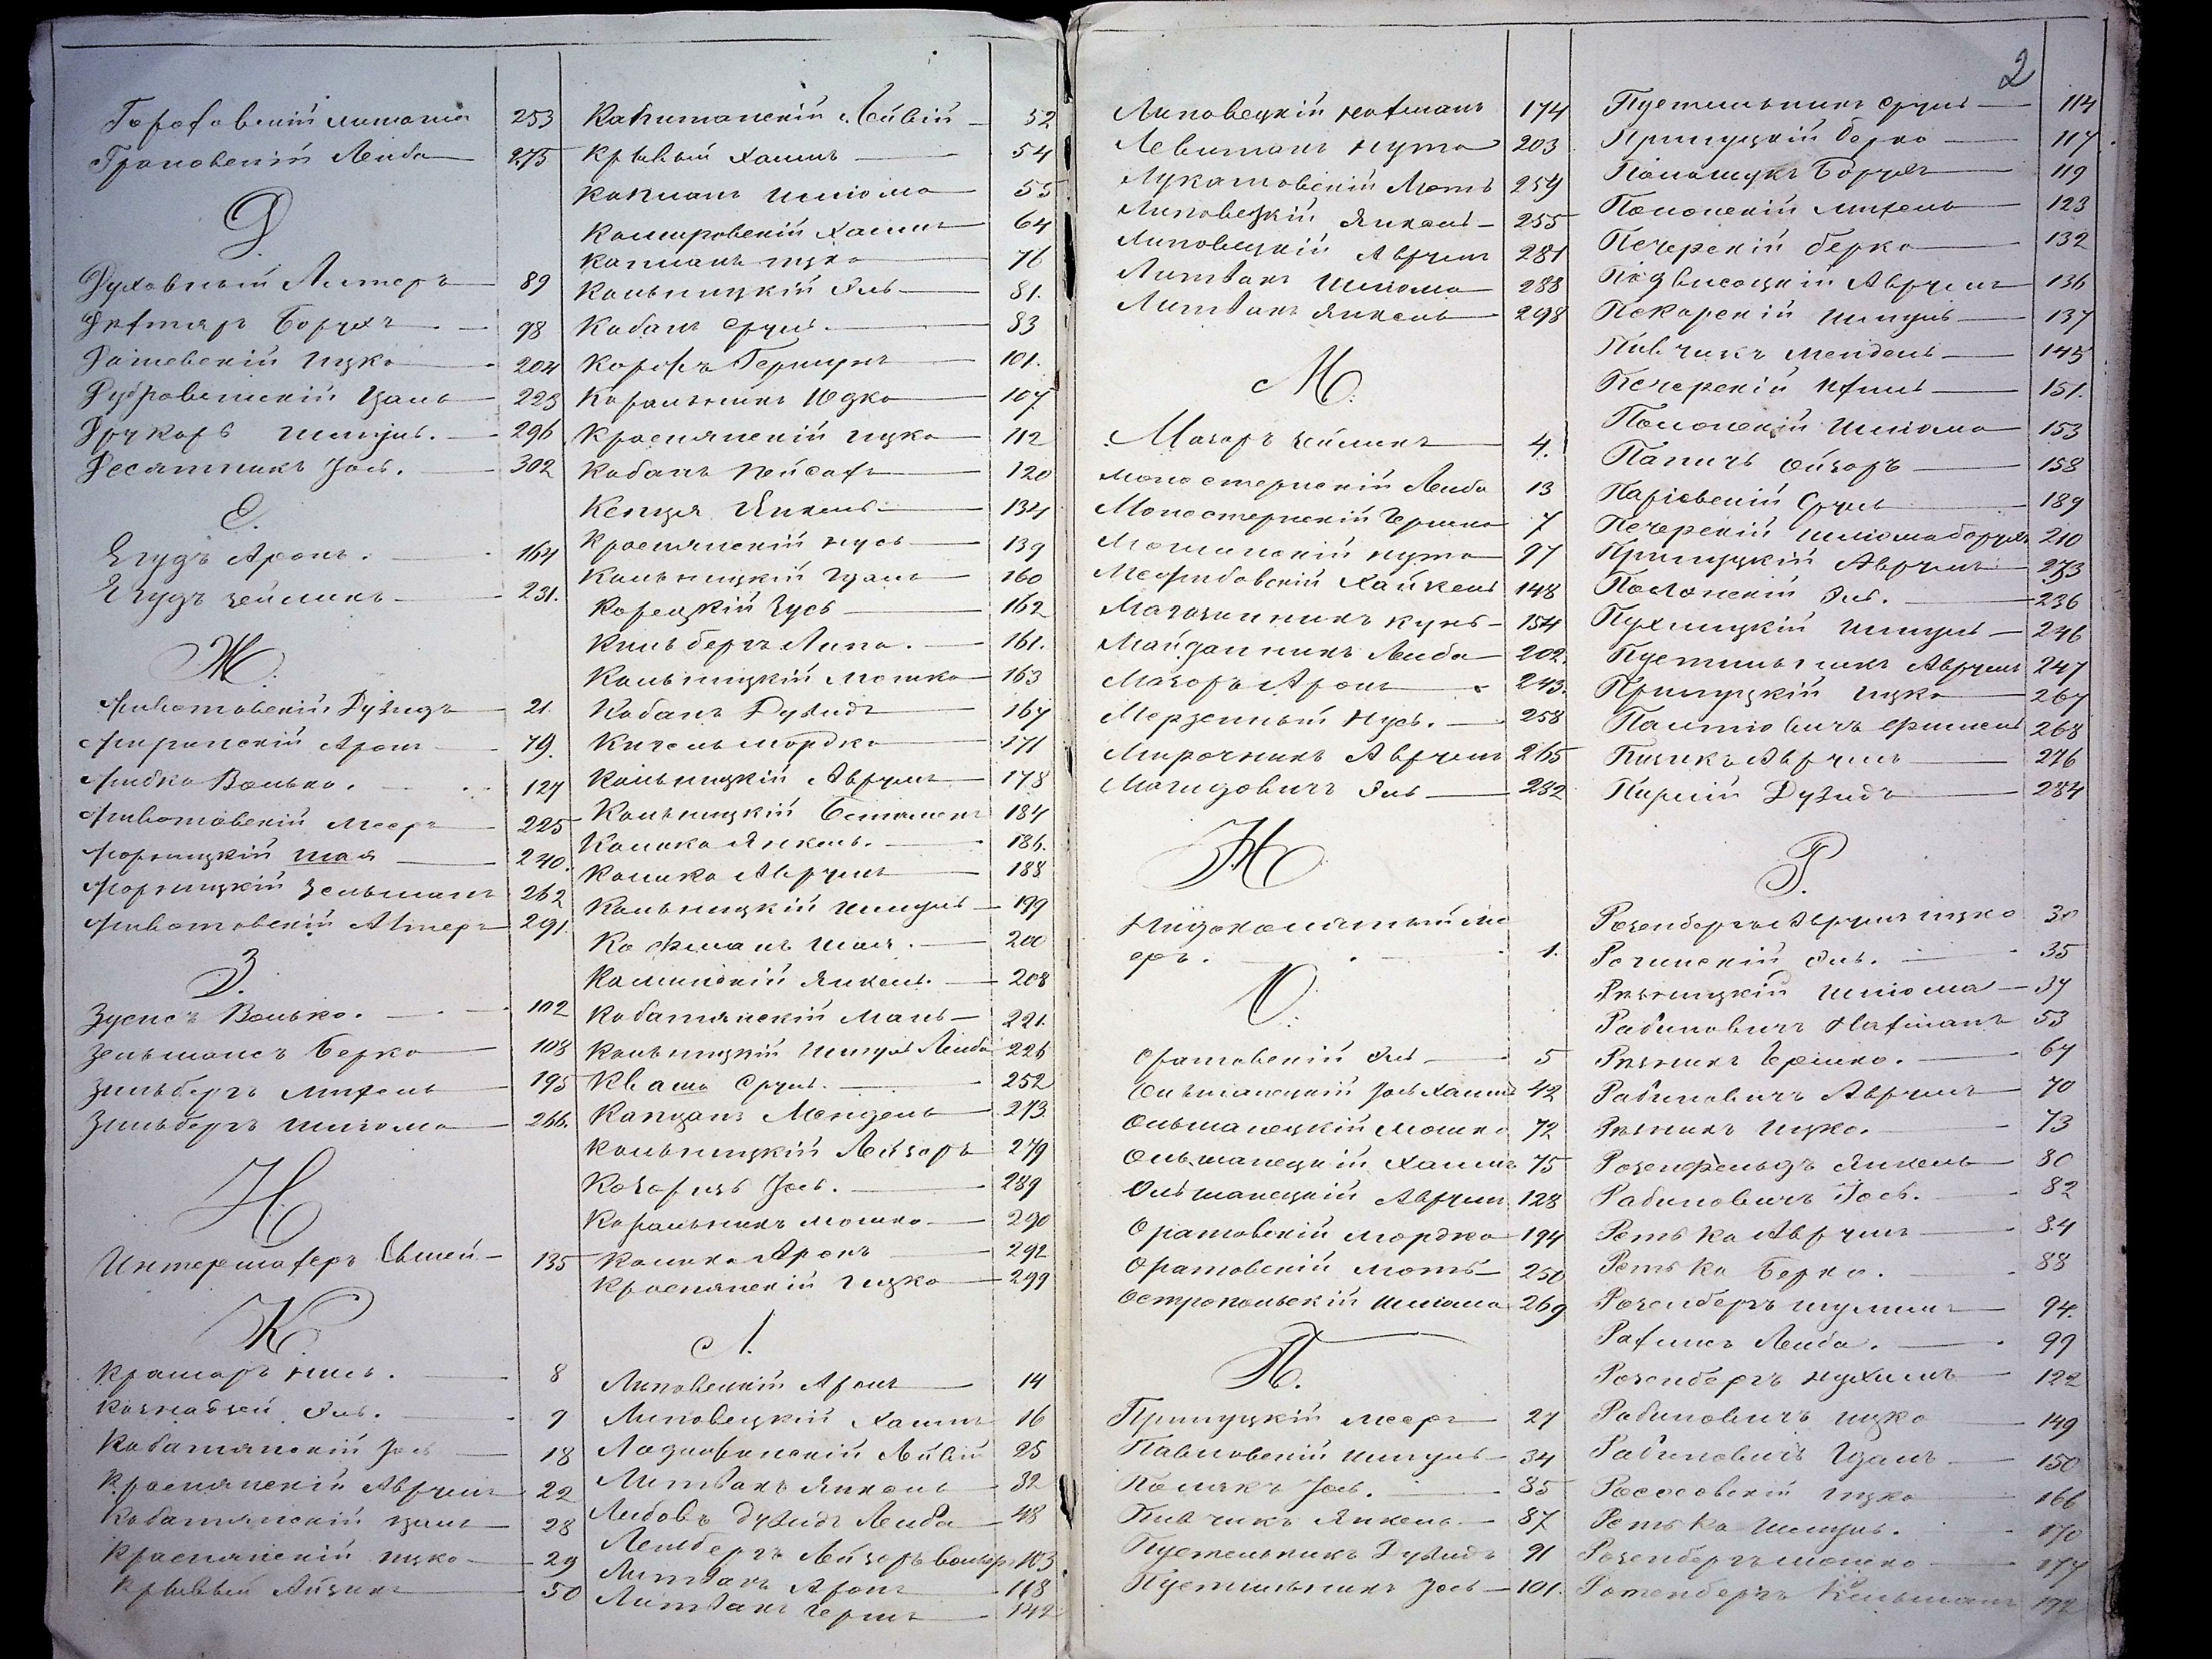 2
Гороховскій
253
Грановскій Лейба
275
Д.
Духовный Литеръ
89
Дехтяръ Борухъ
98
Дашевскій Ицко
204
229
Друкаръ Шмуль.
296
Десятникъ Іось.
302
Е.
Егудъ Аронъ.
164
Егудъ Зейликъ
231.
Ж.
Животовскій Дувидъ
21
Аронъ
79.
Жибка Волько.
127
Животовскій Мееръ
225
Жорницкій Шая
240.
Жорницкій Зельманъ
262
Животовскій
291
З.
Зусисъ Волько.
102
Зельмансъ Берко
108
Зильбергъ Михель
195
Зильбергъ Шлиома
266.
И.
135
К
Крамаръ Нись.
8
Эль.
9
Кабатянскій Іось
18
Краснянскій Аврумъ
22
Кабатянскій Удаль
28
Краснянскій Ицко
29
Кривый Айзикъ
50
Капитанскій Лейвій
52
Кривый Хаимъ
54
Капланъ Шліома
55
Хаимъ
64
Капланъ Ицко
76
Кальницкій Эль
81.
Кабакъ Сруль.
83
Гершунъ
101.
Юдко
107
Краснянскій Ицко
112
Кабакъ Пейсахъ
120
Янкель
134
Краснянскій Нусь
139
Кальницкій
160
Корецкій Зусь
162
Кильбергъ Липа.
161.
Кальницкій Мошко
163
Кабакъ Дувидъ
167
Кигель Мордко
171
Кальницкій Аврумъ
178
Кальницкій
184
Калика Янкель.
186.
Калика Аврумъ
188
Кальницкій Шмуль
199
Кофманъ Шая.
200
Калинскій Янкель.
208
Кабатянскій Мань
221.
Кальницкій Шмуль Лейба
226
Кваша Сруль.
252
Капцанъ Мендель
273
Кальницкій Лейзоръ
279
Іось.
289
Мошко
290
Калика Аронъ
292
Краснянскій Ицко
299
Л.
Липовецкій Аронъ
14
Липовецкій Хаимъ
16
Лейвій
25
Литвакъ Янкель
32
Либовъ Дувидъ Лейба
48
Лембергъ Лейзоръ
103
Литвакъ Аронъ
118
Литвакъ Гершъ
142
Липовецкій Нахманъ
174
Левитанъ Нута
203
Лукашовскій Моть
254
Липовецкій Янкель
255
Липовецкій Аврумъ
281
Литвакъ Шліома
288
Литвакъ Янкель
298
М.
Мазоръ Зейликъ
4.
Монастернскій Лейба
13
Монастернскій Гершко
7
Нута
97
Межибовскій Хайкель
148
Магазинникъ Кунь
154
Майданникъ Лейба
202.
Мазоръ Аронъ
243.
Мерзенный Нусь.
258
Мирочникъ Аврумъ
265
Магидовичъ Эль
282
Н
1.
О.
Оратовскій Эль
5
Ольшанецкій Іось Хаимъ
42
Ольшанецкій Мошко
72
Ольшанецкій Хаимъ
75
Ольшанецкій Аврумъ
128
Оратовскій Мордко
194
Оратовскій Моть
250
Остропольскій Шліома
269
П.
Прилуцкій Мееръ
27
Павловскій Шмуль
34
Полякъ Іось.
85
Пивчикъ Янкель
87
Пустельникъ Дувидъ
91
Пустильникъ Іось
101.
Пустильникъ Сруль
114
Прилуцкій Берко
117
Паламукъ Борухъ
119
Полонскій Михель
123
Печерскій Берко
132
Підвисоцкій Аврумъ
136
Пекарскій Шмуль
137
Пивчикъ Мендель
145
Печерскій Ихиль
151.
Полонскій Шліома
153
Папичъ Ойзоръ
158
Паріевскій Сруль
189
Печерскій Шліома Борухъ
210
Прилуцкій Аврумъ
Полонскій Эль.
236
Пухлицкій Шмуль
246
Пустильникъ Аврумъ
247
Прилуцкій Ицко
267
268
Пизикъ Аврумъ
276
Пирній Дувидъ
284
Р.
Розенбергъ Аврумъ Ицко
30
Рогинскій Эль.
35
Рѣзницкій Шліома
37
Рабиновичъ Нахманъ
53
Рѣзникъ Гершко.
67
Рабиновичъ Аврумъ
70
Рѣзникъ Ицко.
73
Розенфельдъ Янкель
80
Рабиновичъ Іось.
82
Ретька Аврумъ
84
Ретька Берко.
88
Розенбергъ Шулимъ
94.
Рахлисъ Лейба.
99
Розенбергъ Нухимъ
122
Рабиновичъ Ицко
149
Рабиновичъ Удаль
150
Россовскій Ицко
166
Ретька Шмуль.
170
Розенбергъ Мошко
177
Ротенбергъ Кельманъ
192